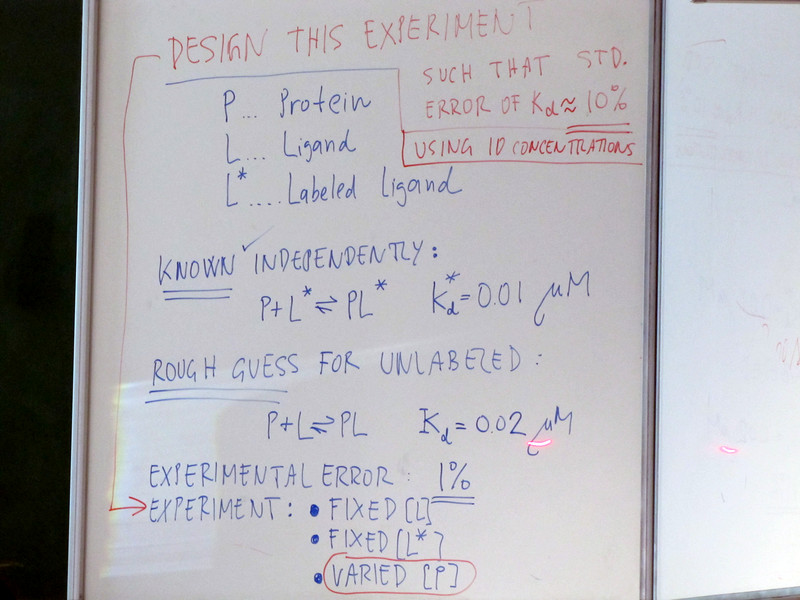 DESIGN THIS EXPERIMENT
SUCH THAT STD.
ERROR OF Kd ≈ 10%
USING 10 CONCENTRATIONS
P... Protein
L.... Ligand
L*.... Labeled Ligand
KNOWN ✓ INDEPENDENTLY:
P+L* ⇌ PL* Kd* = 0.01 μM
ROUGH GUESS FOR UNLABELED:
P+L ⇌ PL Kd = 0.02 μM
EXPERIMENTAL ERROR: 1%
EXPERIMENT: • FIXED [L]
• FIXED [L*]
• VARIED [P]